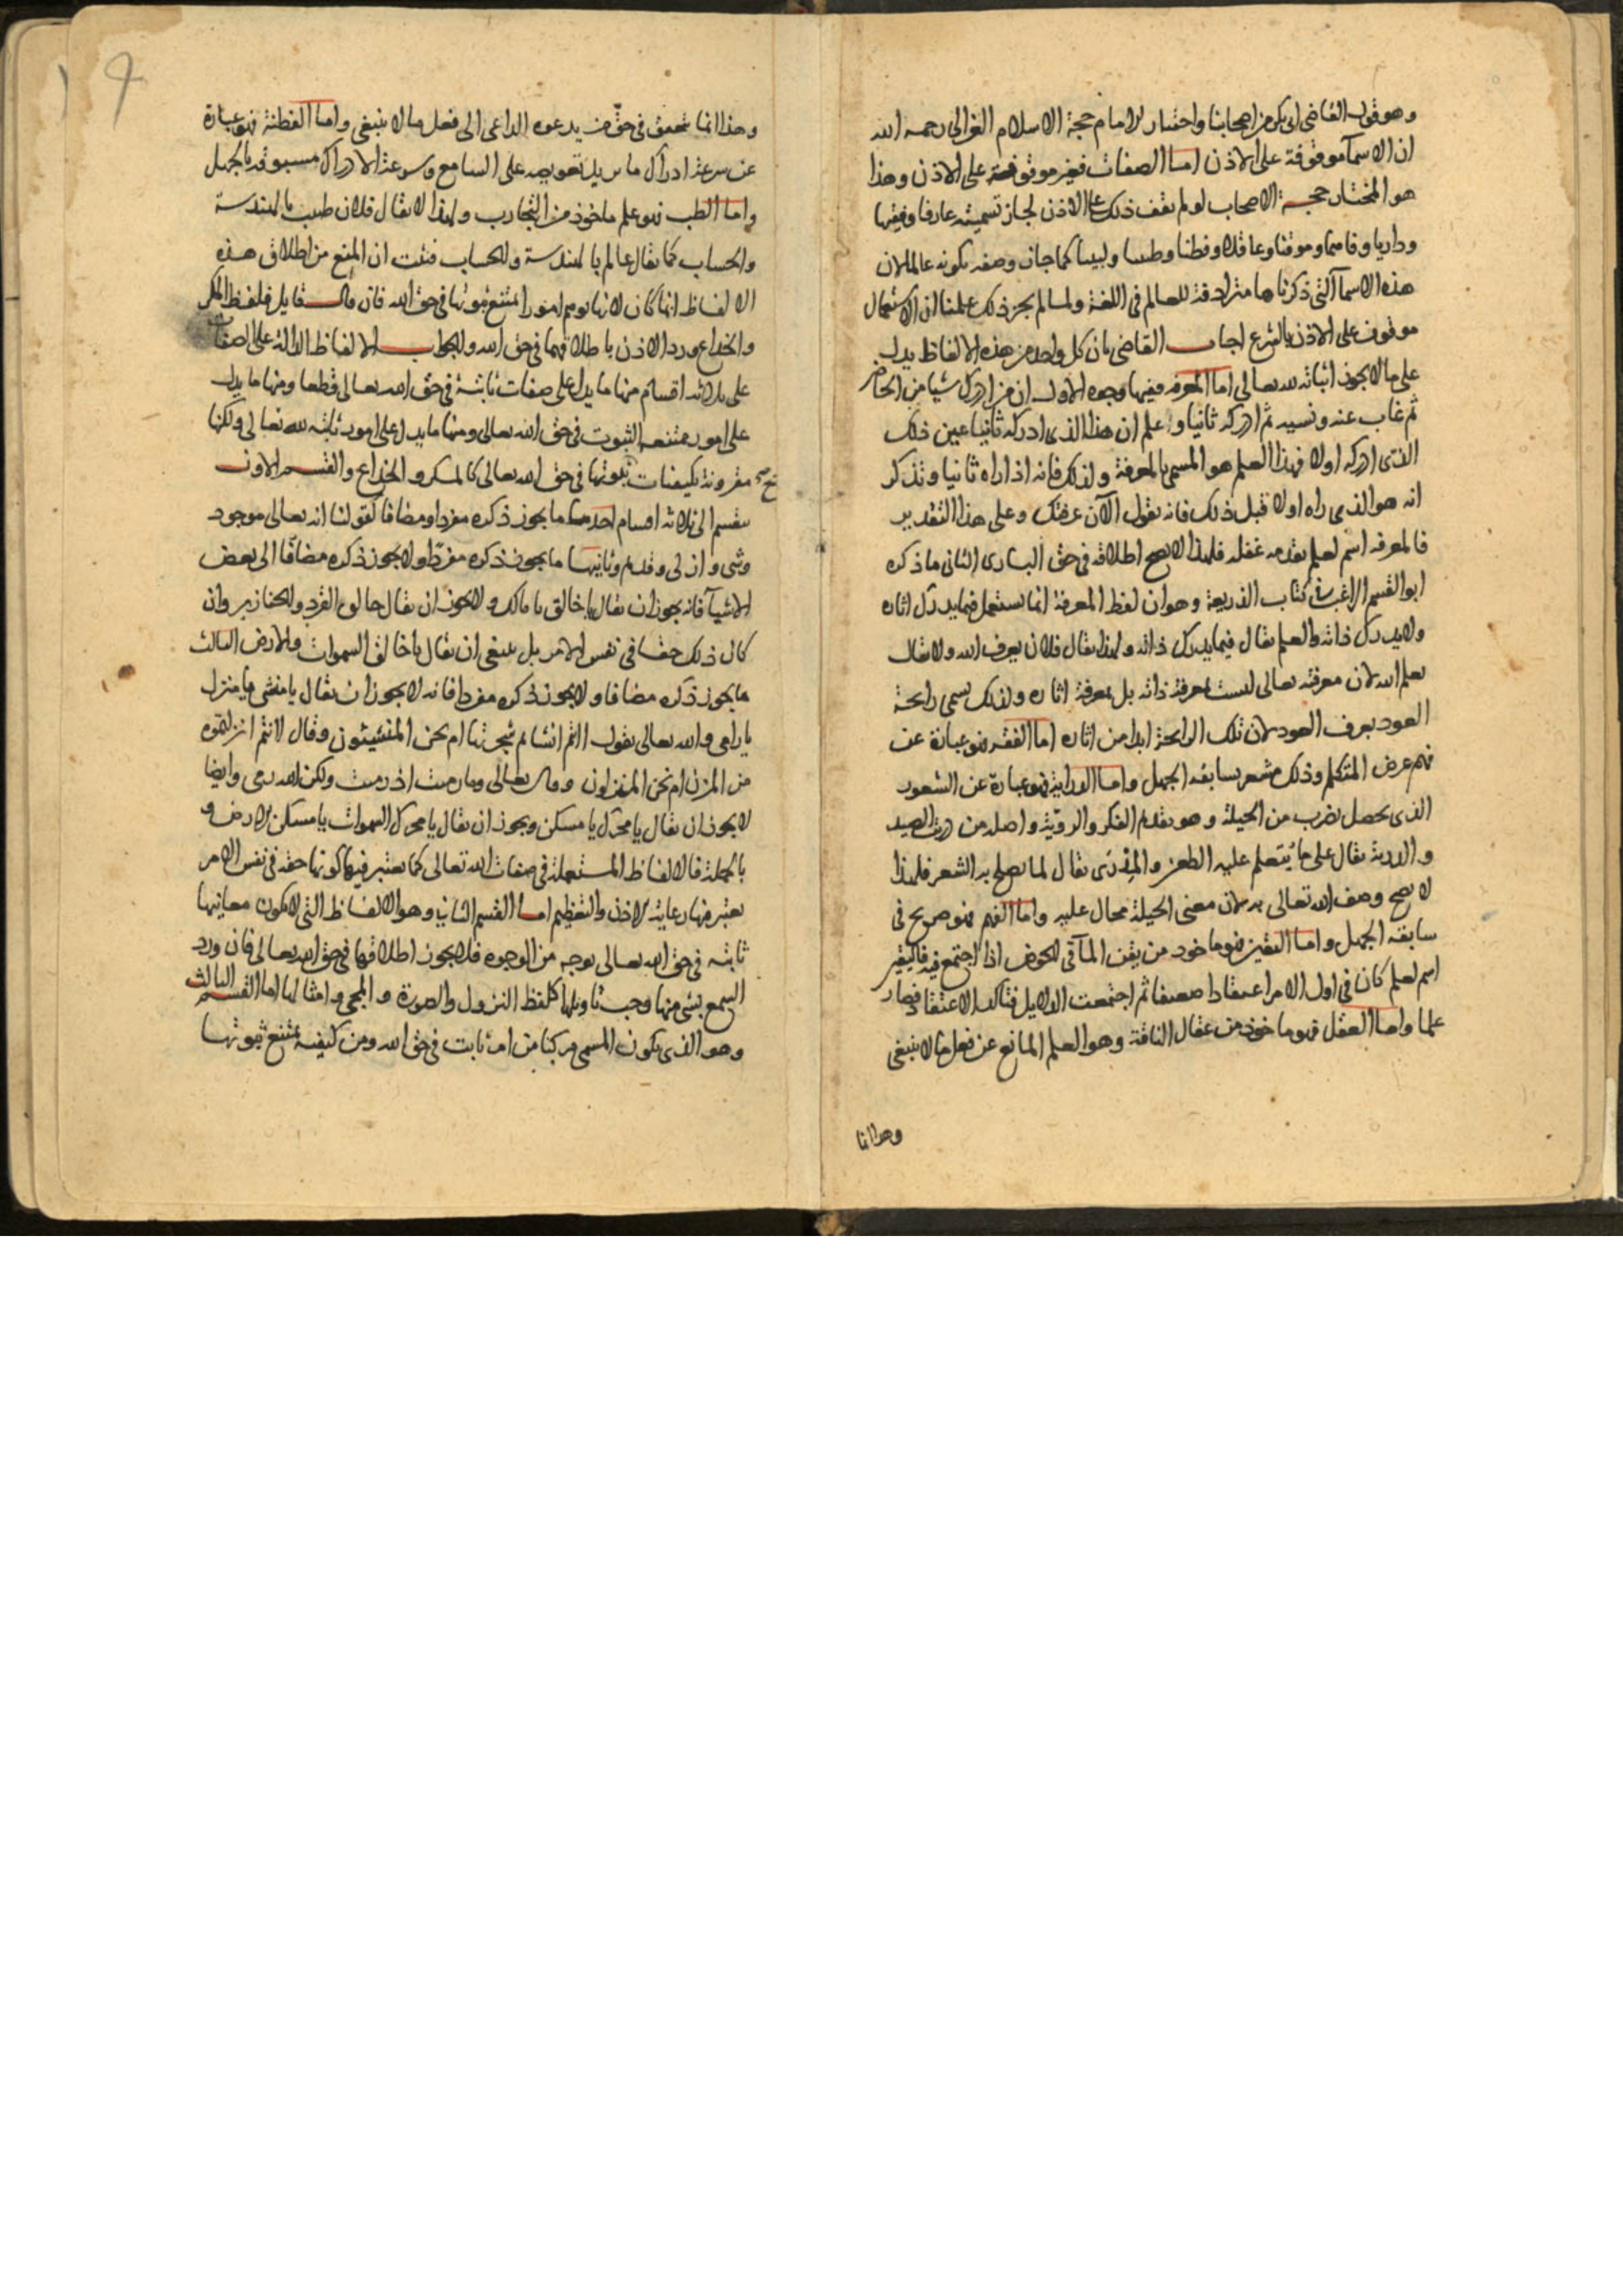 وهو قول القاضى ابى بكر من اصحابنا واختيار الامام حجة الاسلام الغزالى رحمه الله
ان الاسما موقوفة على الاذن اما الصفات فغير موقوفة على الاذن وهذا
هو المختار حجة الاصحاب لو لم يقف ذلك على الاذن لجاز تسميته عارفا وفقيها
وداريا وفاهما وموقنا وعاقلا وفطنا وطبيبا ولبيبا كما جاز وصفه بكونه عالما لان
هذه الاسما التى ذكرناها مترادفة للعالم فى اللغة ولما لم يجز ذلك علمنا ان الاستعمال
موقوف على الاذن بالشرع اجاب القاضى بان كل واحد من هذه الالفاظ يدل
على ما لا يجوز اثباته لله تعالى اما المعرفه ففيها وجوه الاول ان من ادرك شيا من الحاضر
ثم غاب عنه ونسيه ثم ادركه ثانيا وعلم ان هذا الذى ادركه ثانيا عين ذلك
الذى ادركه اولا فهذا العلم هو المسمى بالمعرفة ولذلك فانه اذا راه ثانيا وتذكر
انه هو الذى راه اولا قبل ذلك فانه يقول الآن عرفتك وعلى هذا التقدير
فالمعرفه اسم لعلم تقدمه غفله فلهذا لا يصح اطلاقه فى حق البارى الثانى ما ذكره
ابو القسم الراغب فى كتاب الذريعة وهو ان لفظ المعرفة انما يستعمل فيما يدرك اثاره
ولا يدرك ذاته والعلم يقال فيما يدرك ذاته ولهذا يقال فلان يعرف الله ولا يقال
يعلم الله لان معرفته تعالى ليست بمعرفة ذاته بل بمعرفة اثاره ولذلك يسمى رايحة
العود بعرف العود لان تلك الرايحة ابدا من اثاره اما الفقه فهو عبارة عن
فهم غرض المتكلم وذلك مشعر بسابقه الجهل واما الدراية فهو عبارة عن الشعور
الذى يحصل بضرب من الحيلة وهو تقديم الفكر والروية واصله من دريت الصيد
والدرية يقال على ما يتعلم عليه الطعن والمِدْرَى يقال لما يصلح به الشعر فلهذا
لا يصح وصف الله تعالى به لان معنى الحيلة محال عليه واما الفهم فهو صريح فى
سابقه الجهل واما اليقين فهو ماخوذ من يقن الما فى الحوض اذا اجتمع فيه فاليقين
اسم لعلم كان فى اول الامر اعتقادا ضعيفا ثم اجتمعت الدلايل فتاكد الاعتقاد فصار
علما واما العقل فهو ماخوذ من عقال الناقة وهو العلم المانع عن فعل ما لا ينبغى
وهذا انما
وهذا انما يتحقق فى حق من يدعوه الداعى الى فعل ما لا ينبغى واما الفطنة فهو عبارة
عن سرعة ادراك ما يريد تعويصه على السامع وسرعة الادراك مسبوقه بالجهل
واما الطب فهو علم ماخوذ من التجارب ولهذا لا يقال فلان طبيب بالهندسة
والحساب كما يقال عالم بالهندسة والحساب فثبت ان المنع من اطلاق هذه
الالفاظ انما كان لانها توهم امورا يمتنع ثبوتها فى حق الله فان قال قايل فلفظ المكر
والخداع ورد الاذن باطلاقهما فى حق الله والجواب الالفاظ الدالة على الصفات
على ثلاثه اقسام منها ما يدل على صفات ثابتة فى حق الله تعالى قطعا ومنها ما يدل
على امور ممتنعه الثبوت فى حق الله تعالى ومنها ما يدل على امور ثابته لله تعالى ولكنها
مقرونة بكيفيات ثبوتها فى حق الله تعالى كالمكر والخداع والقسم الاول
ينقسم الى ثلاثه اقسام احدها ما يجوز ذكره مفردا ومضافا كقولنا انه تعالى موجود
وشى وازلى وقديم وثانيها ما يجوز ذكره مفردا ولا يجوز ذكره مضافا الى بعض
الاشيآ فانه يجوز ان يقال يا خالق يا مالك ولا يجوز ان يقال خالق القرد والخنازير وان
كان ذلك حقا فى نفس الامر بل ينبغى ان يقال يا خالق السموات والارض الثالث
ما يجوز ذكره مضافا ولا يجوز ذكره مفردا فانه لا يجوز ان يقال يا منشى يا منزل
يا رامى والله تعالى يقول اانتم انشاتم شجرتها ام نحن المنشيئون وقال اانتم انزلتموه
من المزن ام نحن المنزلون وقال تعالى وما رميت اذ رميت ولكن الله رمى وايضا
لا يجوز ان يقال يا محرك يا مسكن ويجوز ان يقال يا محرك السموات يا مسكن الارض و
بالجملة فالالفاظ المستعملة فى صفات الله تعالى كما يعتبر فيها كونها حقه فى نفس الامر
يعتبر فيها رعاية الاذن والتعظيم اما القسم الثانى وهو الالفاظ التى لا يكون معانيها
ثابته فى حق الله تعالى بوجه من الوجوه فلا يجوز اطلاقها فى حق الله تعالى فان ورد
السمع بشى منها وجب تاويلها كلفظ النزول والصورة والمجى وامثالها اما القسم الثالث
وهو الذى يكون المسمى مركبا من امر ثابت فى حق الله ومن كيفيه يمتنع ثبوتها